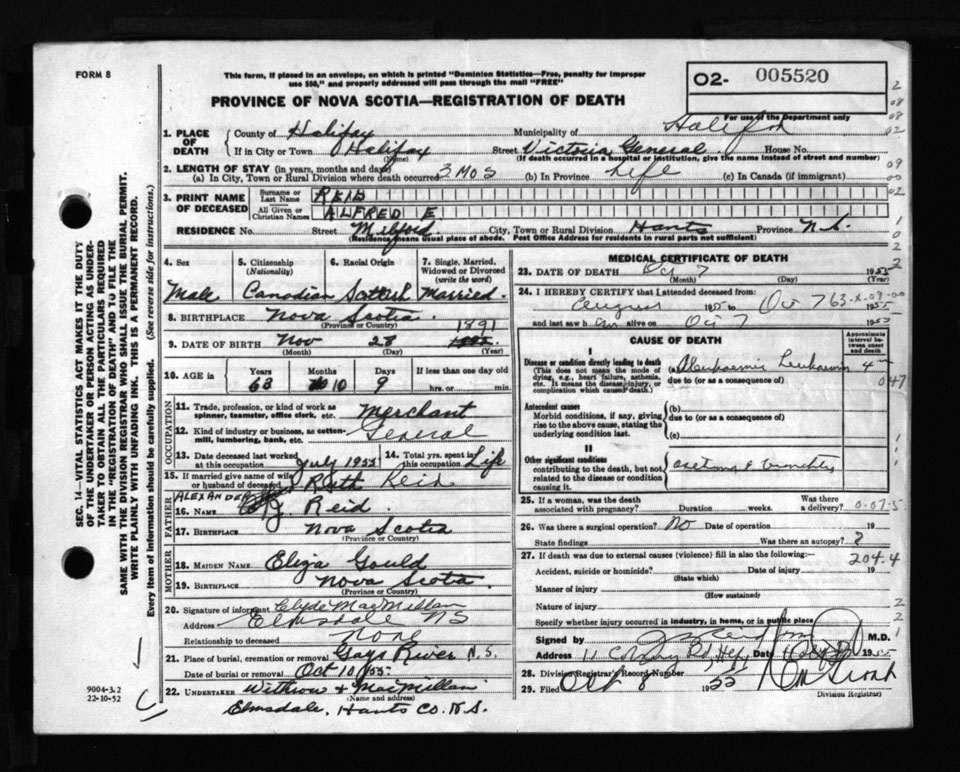 FORM 8
This form, if placed in an envelope, on which is printed "Dominion Statistics—Free, penalty for improper
use $50," and properly addressed will pass through the mail "FREE"
PROVINCE OF NOVA SCOTIA—REGISTRATION OF DEATH
02- 005520
For use of the Department only
1. PLACE OF DEATH
County of Halifax Municipality of Halifax
If in City or Town Halifax Street Victoria General House No.
(Name) (If death occurred in a hospital or institution, give the name instead of street and number)
2. LENGTH OF STAY (in years, months and days)
(a) In City, Town or Rural Division where death occurred 3 Mos (b) In Province Life (c) In Canada (if immigrant)
3. PRINT NAME OF DECEASED
Surname or Last Name REID
All Given or Christian Names ALFRED E
RESIDENCE No. Street Milford City, Town or Rural Division Hants Province N.S.
(Residence means usual place of abode. Post Office Address for residents in rural parts not sufficient)
4. Sex Male
5. Citizenship (Nationality) Canadian
6. Racial Origin Scottish
7. Single, Married, Widowed or Divorced (write the word) Married
8. BIRTHPLACE Nova Scotia
(Province or Country)
9. DATE OF BIRTH Nov 28 1891
(Month) (Day) (Year)
10. AGE in Years 63 Months 10 Days 9 If less than one day hrs. or min.
OCCUPATION
11. Trade, profession, or kind of work as spinner, teamster, office clerk, etc. Merchant
12. Kind of industry or business, as cotton-mill, lumbering, bank, etc. General
13. Date deceased last worked at this occupation July 1955 14. Total yrs. spent in this occupation Life
15. If married give name of wife or husband of deceased Ruth Reid
FATHER
ALEXANDER
16. NAME Reid
17. BIRTHPLACE Nova Scotia
(Province or Country)
MOTHER
18. MAIDEN NAME Eliza Gould
19. BIRTHPLACE Nova Scotia
(Province or Country)
20. Signature of informant Clyde MacMillan
Address Elmsdale NS
Relationship to deceased None
21. Place of burial, cremation or removal Gays River N.S.
Date of burial or removal Oct 10/55.
22. UNDERTAKER Withrow & MacMillan
(Name and address)
Elmsdale, Hants Co. N.S.
MEDICAL CERTIFICATE OF DEATH
23. DATE OF DEATH Oct 7 1955
(Month) (Day) (Year)
24. I HEREBY CERTIFY that I attended deceased from
August 1955 to Oct 7 1955
63-X-07-00
and last saw h im alive on Oct 7 1955
CAUSE OF DEATH
Approximate interval between onset and death
I
Disease or condition directly leading to death
(This does not mean the mode of dying, e.g., heart failure, asthenia, etc. It means the disease, injury, or complication which caused death.)
(a) Aleukaemic Leukaemia 4
due to (or as a consequence of)
Antecedent causes
Morbid conditions, if any, giving rise to the above cause, stating the underlying condition last.
(b)
due to (or as a consequence of)
(c)
II
Other significant conditions
contributing to the death, but not related to the disease or condition causing it.
25. If a woman, was the death associated with pregnancy? Duration weeks. Was there a delivery?
26. Was there a surgical operation? No Date of operation 19
State findings Was there an autopsy? ?
27. If death was due to external causes (violence) fill in also the following:—
204.4
Accident, suicide or homicide? Date of injury 19
(State which)
Manner of injury
(How sustained)
Nature of injury
Specify whether injury occurred in industry, in home, or in public place
Signed by M.D.
Address Date 1955
28. Division Registrar's Record Number
29. Filed Oct 8 1955
Division Registrar
SEC. 14—VITAL STATISTICS ACT MAKES IT THE DUTY
OF THE UNDERTAKER OR PERSON ACTING AS UNDER-
TAKER TO OBTAIN ALL THE PARTICULARS REQUIRED
IN THE "REGISTRATION OF DEATH" AND TO FILE THE
SAME WITH THE DIVISION REGISTRAR WHO SHALL ISSUE THE BURIAL PERMIT.
WRITE PLAINLY WITH UNFADING INK. THIS IS A PERMANENT RECORD.
Every item of information should be carefully supplied. (See reverse side for instructions.)
9004-3.2
22-10-52